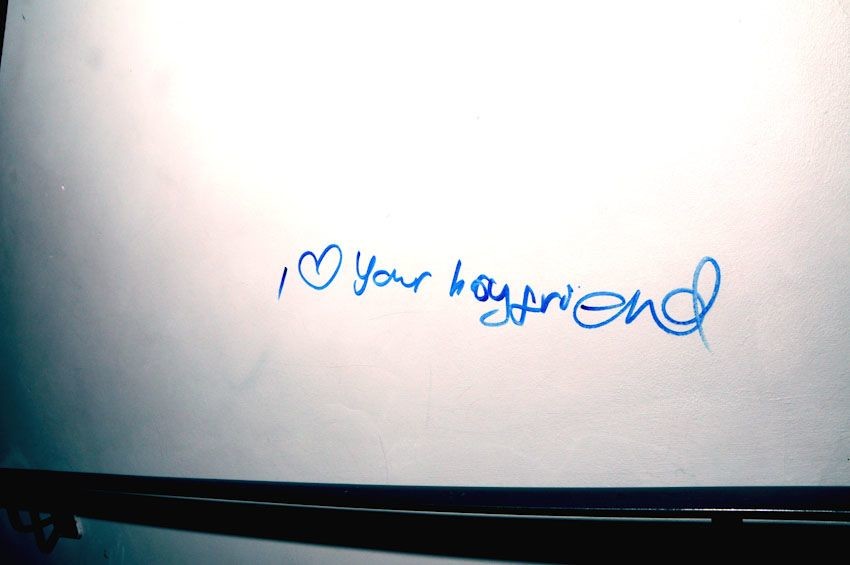 I ♡ your boyfriend